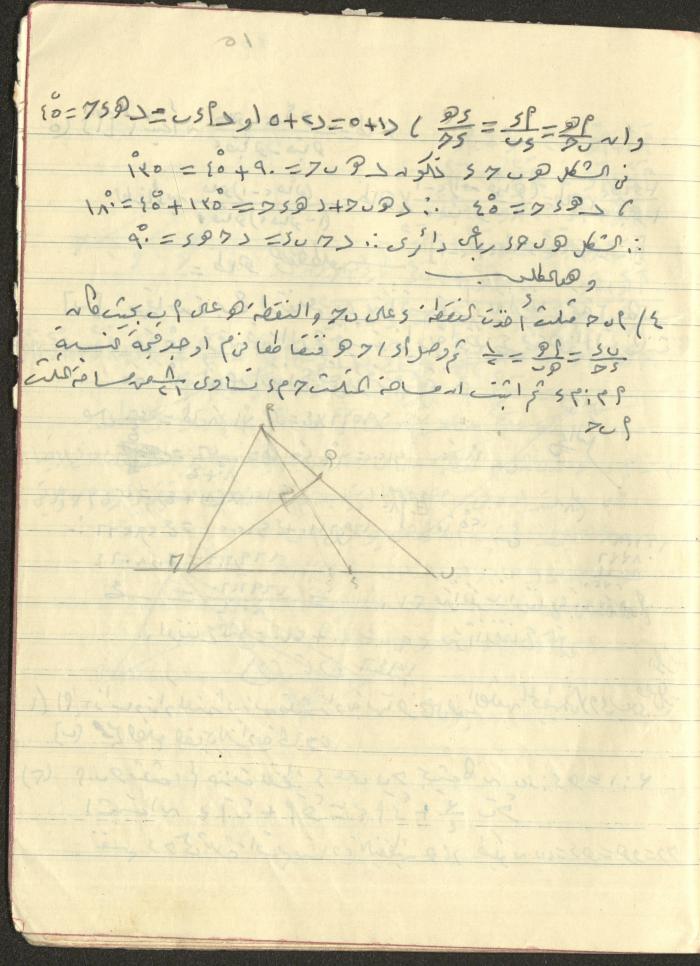 ١٥
وان م‍ه/ب‍ح = م‍ء/ء‍ب = ء‍ه/ء‍ح ) د١+٥ = د٢+٥ او د م ء ب = د ه ء ح = ٤٥°
فى الشكل ه ب ح ء تكون د ه ب ح = ٩٠ + ٤٥° = ١٣٥°
) د ه ء ح = ٤٥° ∴ د ه ب ح + د ه ء ح = ١٣٥ + ٤٥° = ١٨٠°
∴ الشكل ه ب ح ء رباعى دائرى ∴ د ح ء ب = د ح ه ب = ٩٠°
وهو المطلوب
٤) م ب ح مثلث أخذت النقطة ء على ب ح والنقطة ه على م ب بحيث كان
ب‍ء/ء‍ح = م‍ه/ه‍ب = ١/٢ ثم وصل م ء ، ح ه فتقاطعا فى م اوجد قيمة نسبة
م م : م ء ثم اثبت ان مساحة المثلث ح م ء تساوى ٨/٢١ من مساحة المثلث
م ب ح
م
ه
م
ح
ء
ب